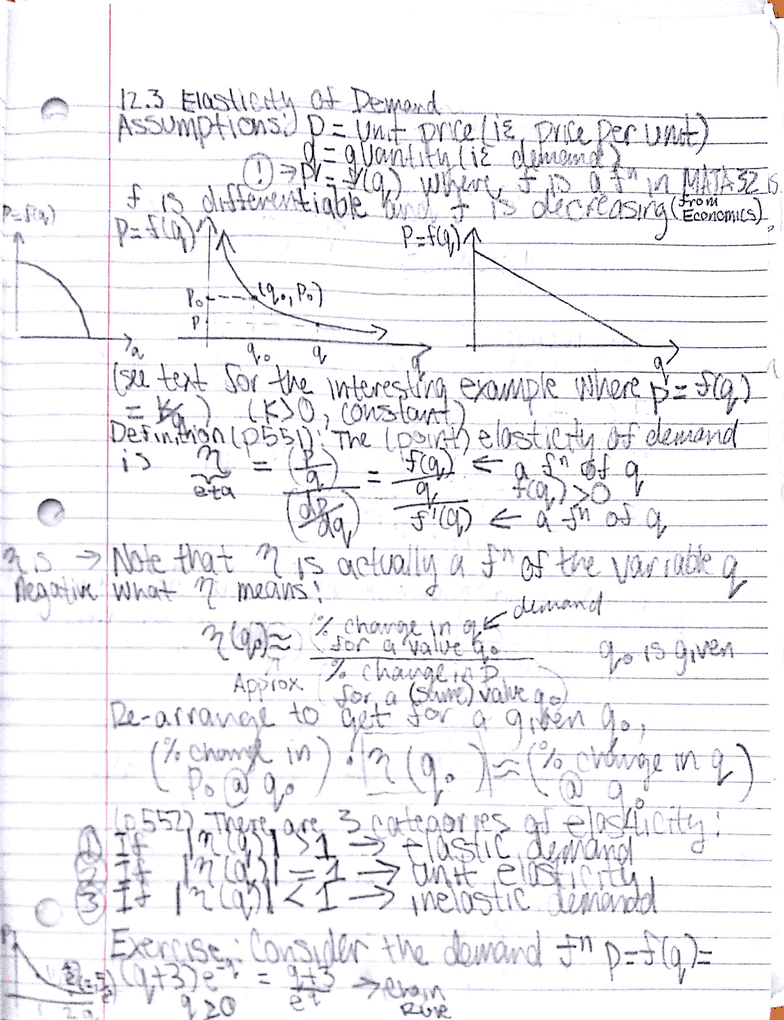 12.3 Elasticity of Demand
Assumptions: p = unit price (iε price per unit)
q = quantity (iε demand)
! → p = f(q) where, f is a fⁿ in MATA32 is
f is differentiable and f is decreasing (from Economics).
P=f(q)
P=f(q)
P=f(q)
P₀
(q₀, P₀)
P
q
q₀
q
q
q
(see text for the interesting example where p = f(q)
= k/q) (K>0, constant)
Definition (p551): The (point) elasticity of demand
is η = (p/q)/(dp/dq) = (f(q)/q)/f'(q) ← a fⁿ of q
eta
f(q)>0
← a fⁿ of q
η is → Note that η is actually a fⁿ of the variable q
Negative What η means:
demand
η(q₀) ≈ (% change in q for a value q₀)/(% change in p for a (same) value q₀)
q₀ is given
Approx
Re-arrange to get for a given q₀,
(% change in P₀ @ q₀) · |η(q₀)| ≈ (% change in q @ q₀)
(p552) There are 3 categories of elasticity:
① If |η(q)| > 1 → elastic demand
② If |η(q)| = 1 → unit elasticity
③ If |η(q)| < 1 → inelastic demand
Exercise: Consider the demand fⁿ p=f(q)=
(q+3)e^-q = q+3/e^q → Chain Rule
q≥0